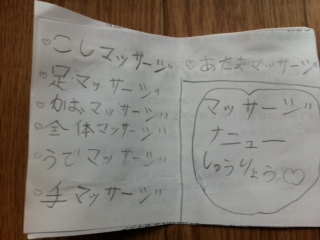 ♡こしマッサージ
♡足マッサージ
♡かたマッサージ
♡全体マッサージ
♡うでマッサージ
♡手マッサージ
♡あたまマッサージ
マッサージ
ナニュー
しゅうりょう♡